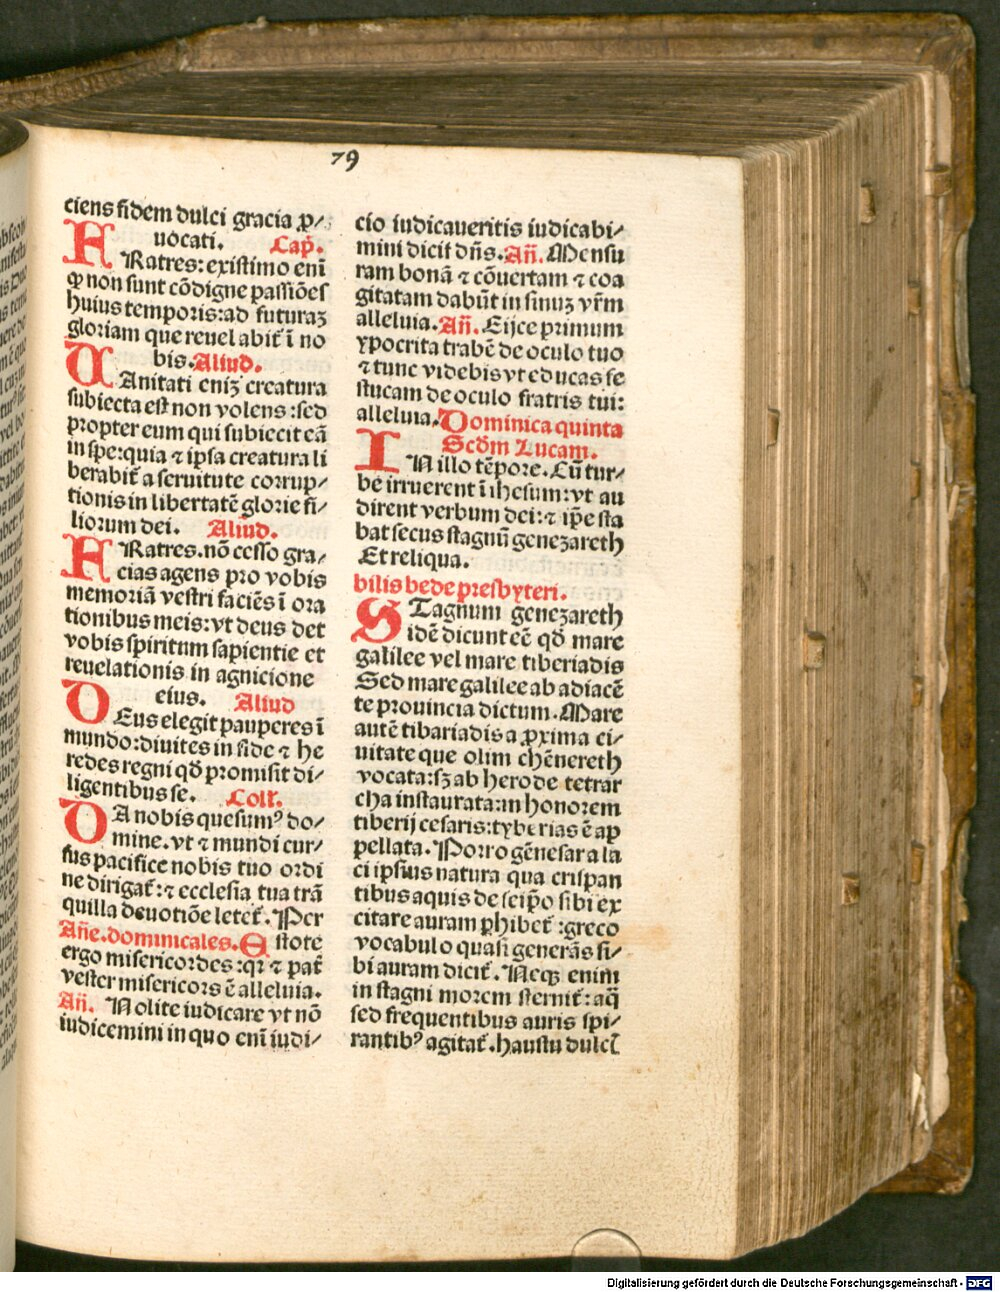 79
ciens fidem dulci gracia ꝓ⸗
uocati. Cap̄.
FRatres: existimo eni̅
ꝙ non sunt co̅digne passio̅es
huius temporis: ad futuraꝫ
gloriam que reuelabit᷑ i̅ no
bis. Aliud.
VAnitati eniꝫ creatura
subiecta est non volens: sed
propter eum qui subiecit ea̅
in spe: quia ⁊ ipsa creatura li
berabit᷑ a seruitute corrup⸗
tionis in libertate̅ glorie fi⸗
liorum dei. Aliud.
FRatres. no̅ cesso gra⸗
cias agens pro vobis
memoria̅ vestri facie̅s i̅ ora
tionibus meis: vt deus det
vobis spiritum sapientie et
reuelationis in agnicione
eius. Aliud
DEus elegit pauperes i̅
mundo: diuites in fide ⁊ he
redes regni qd̅ promisit di⸗
ligentibus se. Coll᷑.
DA nobis quesumꝰ do⸗
mine. vt ⁊ mundi cur⸗
sus pacifice nobis tuo ordi
ne dirigat᷑: ⁊ ecclesia tua tra̅
quilla deuotio̅e letet᷑. Per
An̅e. dominicales. Estote
ergo misericordes: qr̅ ⁊ pat᷑
vester misericors e̅ alleluia.
An̅. Nolite iudicare vt no̅
iudicemini in quo eni̅ iudi⸗
cio iudicaueritis iudicabi⸗
mini dicit dn̅s. An̅. Mensu
ram bona̅ ⁊ co̅uertam ⁊ coa
gitatam dabu̅t in sinuꝫ vr̅m
alleluia. An̅. Eijce primum
ypocrita trabe̅ de oculo tuo
⁊ tunc videbis vt educas fe
stucam de oculo fratris tui:
alleluia. Dominica quinta
Scd̅m Lucam.
IN illo te̅pore. Cu̅ tur⸗
be irruerent i̅ ihesum: vt au
dirent verbum dei: ⁊ ip̅e sta
bat secus stagnu̅ genezareth
Et reliqua.
bilis bede presbyteri.
STagnum genezareth
ide̅ dicunt ee̅ qd̅ mare
galilee vel mare tiberiadis
Sed mare galilee ab adiace̅
te prouincia dictum. Mare
aute̅ tibariadis a ꝓxima ci⸗
uitate que olim che̅nereth
vocata: sꝫ ab herode tetrar
cha instaurata: in honorem
tiberij cesaris: tyberias e̅ ap
pellata. Porro ge̅nesar a la
ci ipsius natura qua crispan
tibus aquis de seip̅o sibi ex
citare auram ꝑhibet᷑: greco
vocabulo quasi genera̅s si⸗
bi auram dicit᷑. Neqꝫ enim
in stagni morem sternit᷑: aq̅
sed frequentibus auris spi⸗
rantibꝰ agitat᷑. haustu dulci̅
Digitalisierung gefördert durch die Deutsche Forschungsgemeinschaft - DFG